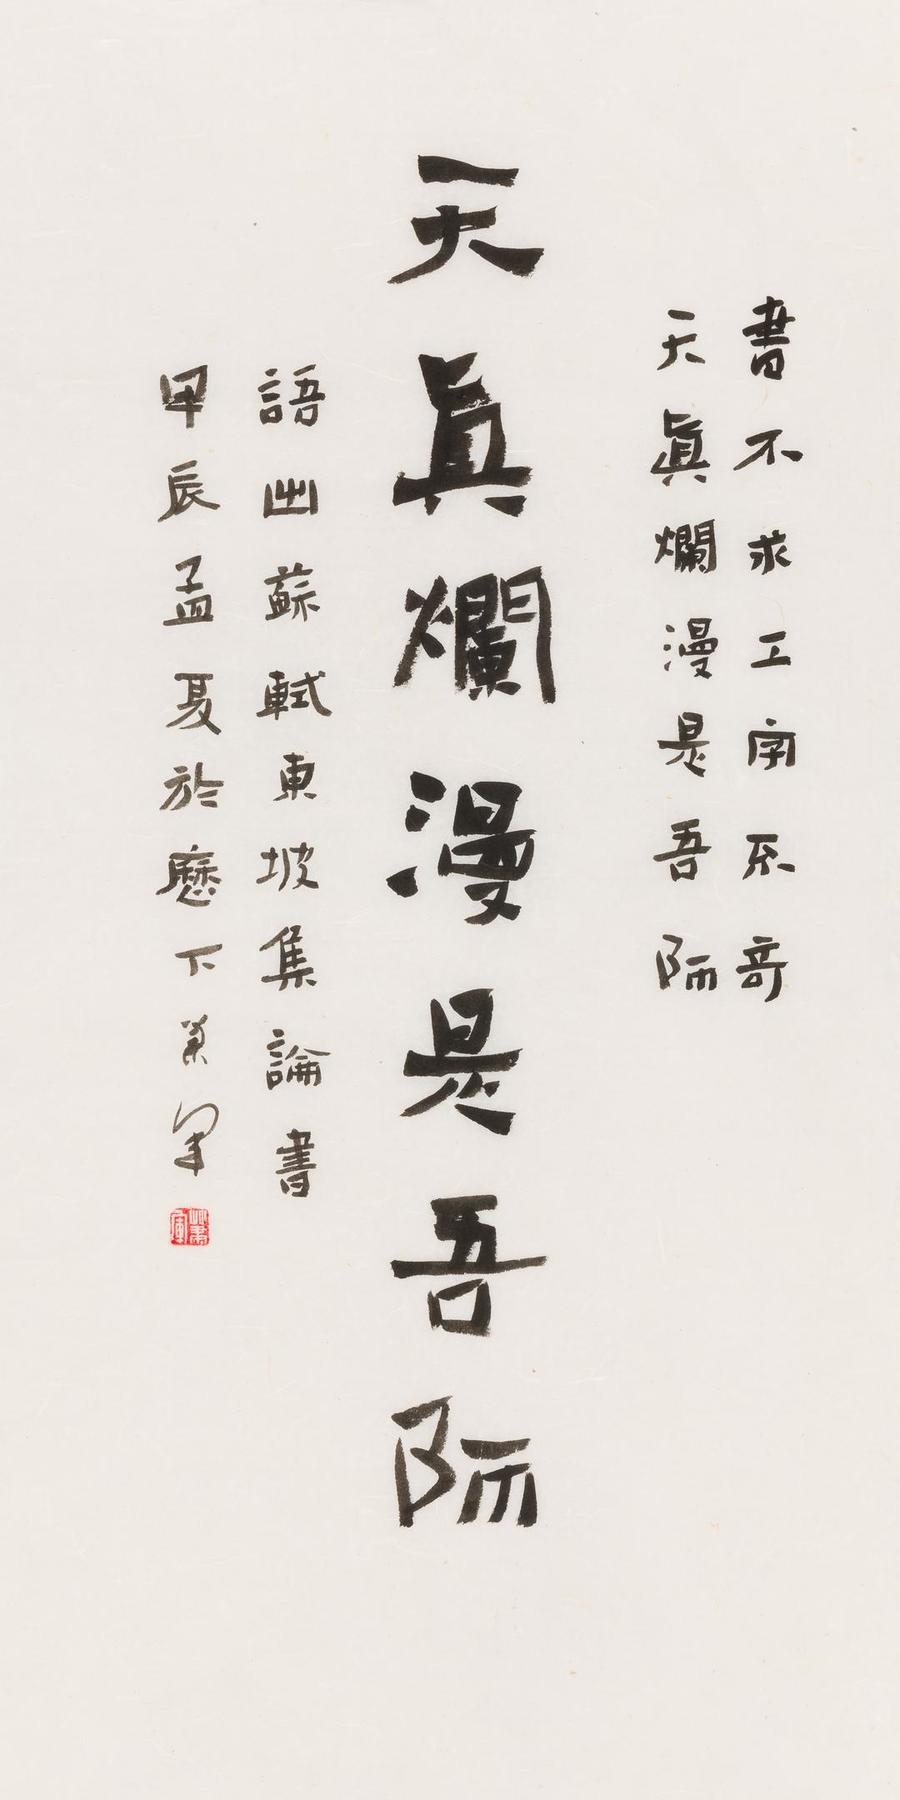 書不求工字不奇
天真爛漫是吾師
天真爛漫是吾師
語出蘇軾東坡集論書
甲辰孟夏於歷下蕭軍
蕭軍